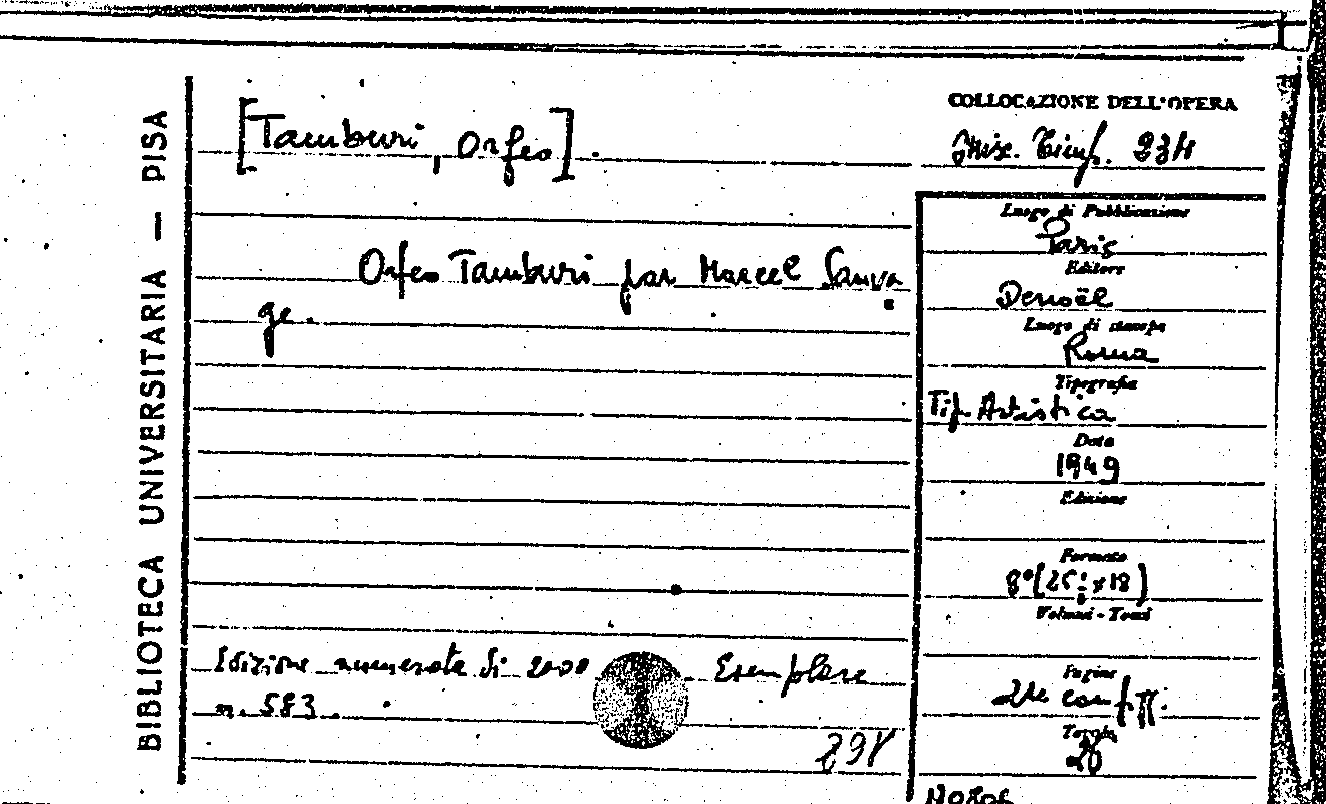 BIBLIOTECA UNIVERSITARIA — PISA
[Tamburi, Orfeo].
Orfeo Tamburi par Marcel Sauva
ge.
Edizione numerata di 2000 Esemplare
n. 583.
COLLOCAZIONE DELL'OPERA
Misc. 234
Luogo di Pubblicazione
Paris
Editore
Denoël
Luogo di stampa
Roma
Tipografia
Tip. Artistica
Data
1949
Edizione
Formato
8°
Volumi - Tomi
Pagine
Tavole
20